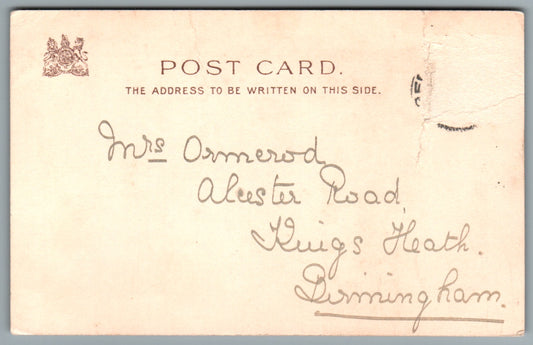 POST CARD.
THE ADDRESS TO BE WRITTEN ON THIS SIDE.
Mrs Ormerod
Alcester Road,
Kings Heath.
Birmingham.